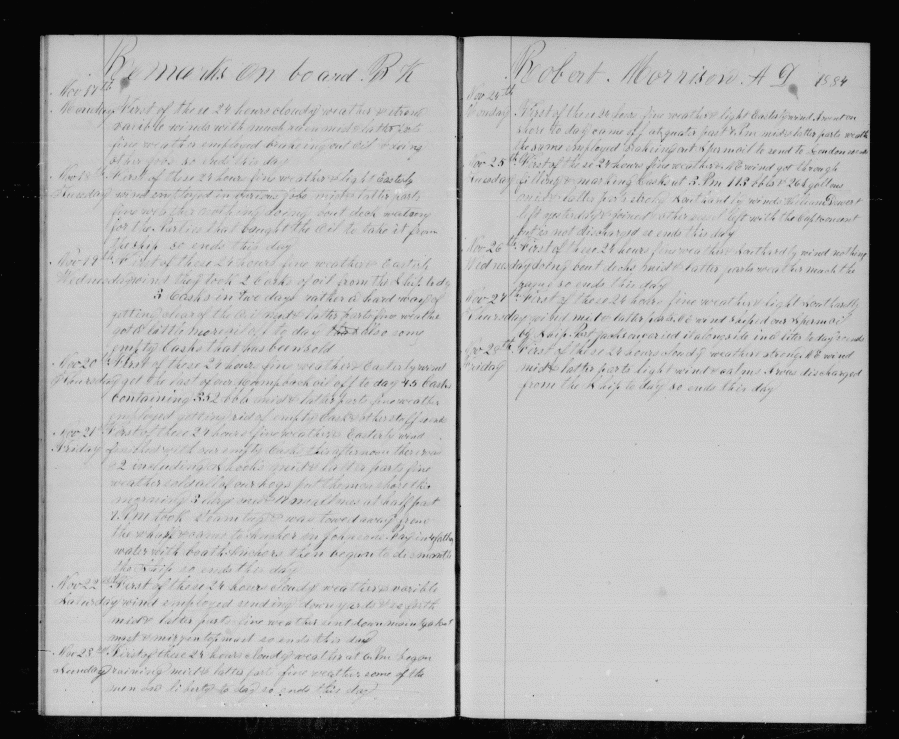 Remarks on board Bk
Nov 17th
Monday First of these 24 hours cloudy weather & strong
varible winds with much rain mid & latter parts
fine weather employed breaking out oil &
other jobs so ends this day
Nov 18th First of these 24 hours fine weather & light Easterly
Tuesday wind employed in various jobs mid & latter parts
fine weather nothing doing bout deck waiting
for the Parties that bought the Oil to take it from
the ship so ends this day
Nov 19th First of these 24 hours fine weather & Easterly
Wednesday wind they took 2 Casks of oil from the Ship to day
3 Casks in two days rather a hard way of
getting clear of the Oil mid & latter parts fine weather
got a little more oil off to day also some
empty Casks that has been sold
Nov 20th First of these 24 hours fine weather & Easterly wind
Thursday got the last of our Humpback oil off to day 45 Casks
Containing 352 bbls mid & latter parts fine weather
employed getting rid of empty Casks & other stuff so ends
Nov 21st First of these 24 hours fine weather & Easterly wind
Friday finished with our empty Casks this afternoon there was
2 including mid & latter parts fine
weather sold all our hogs put them on shore this
morning 3 large ones & small ones at half past
P.M took Steam tug & was towed away from
the wharf & came to Anchor on Johnsons Bay in 4 fathoms
water with both Anchors then begun to dismantle
the Ship so ends this day
Nov 22nd First of these 24 hours cloudy weather & varible
Saturday wind employed sending down yards & so forth
mid & latter parts fine weather sent down main
mast & mizzen topmast so ends this day
Nov 23rd First of these 24 hours cloudy weather at 6 P.m began
Sunday raining mid & latter parts fine weather some of the
men on liberty to day so ends this day
Robert Morrison A D 1884
Nov 24th
Monday First of these 24 hours fine weather & light Easterly wind went on
shore to day came off at quarter past 4 P.m mid & latter parts weather
the same employed breaking out Sperm oil to send to London
Nov 25th First of these 24 hours fine weather & NE wind got through
Tuesday filling & marking Casks at 3 Pm 113 bbls & 26 gallons
mid & latter parts strong Southard by winds William Dewert
left yesterday & joined other vessel left with the Caps consent
but is not discharged so ends this day
Nov 26th First of these 24 hours fine weather & Southerdly wind nothing
Wednesday doing bout decks mid & latter parts weather much the
same so ends this day
Nov 27th First of these 24 hours fine weather & light Southardly
Thursday wind mid & latter parts NE wind shiped our Sperm oil
by Ship carried it along side in a liter to day so ends
Nov 28th First of these 24 hours cloudy weather strong NE wind
Friday mid & latter parts light wind & calms I was discharged
from the Ship to day so ends this day